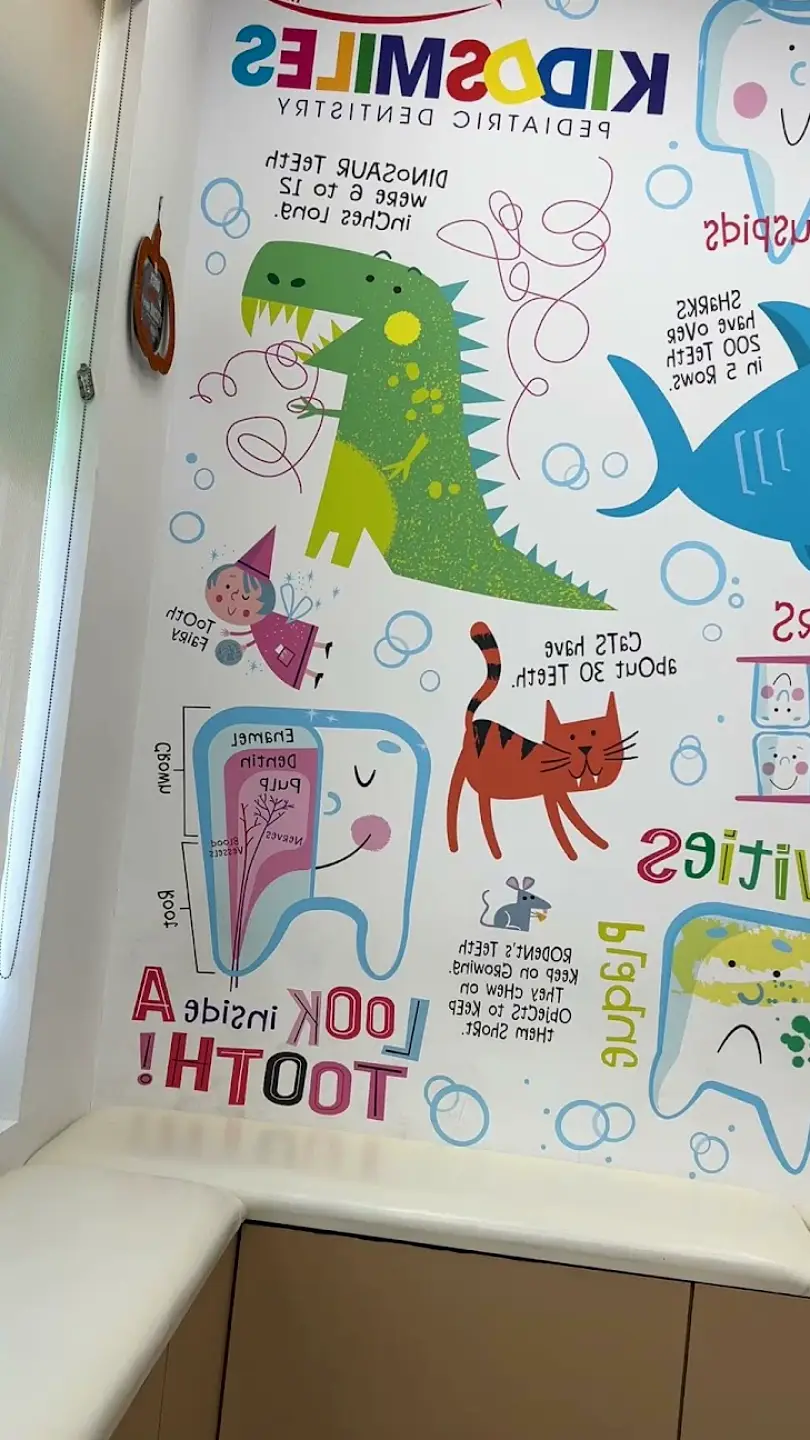 KIDDOSMILES
PEDIATRIC DENTISTRY
DINOSAUR TEETH
WERE 6 to 12
inches Long.
SHARKS
have OVER
200 TEETH
in 5 Rows.
TOOTH
FAIRY
CATS have
about 30 TEETH.
Crown
Root
Enamel
Dentin
Pulp
Nerves
Blood
Vessels
RODENT'S TEETH
KEEP on Growing.
They chew on
Objects to KEEP
them Short.
Plaque
LOOK inside A
TOOTH!